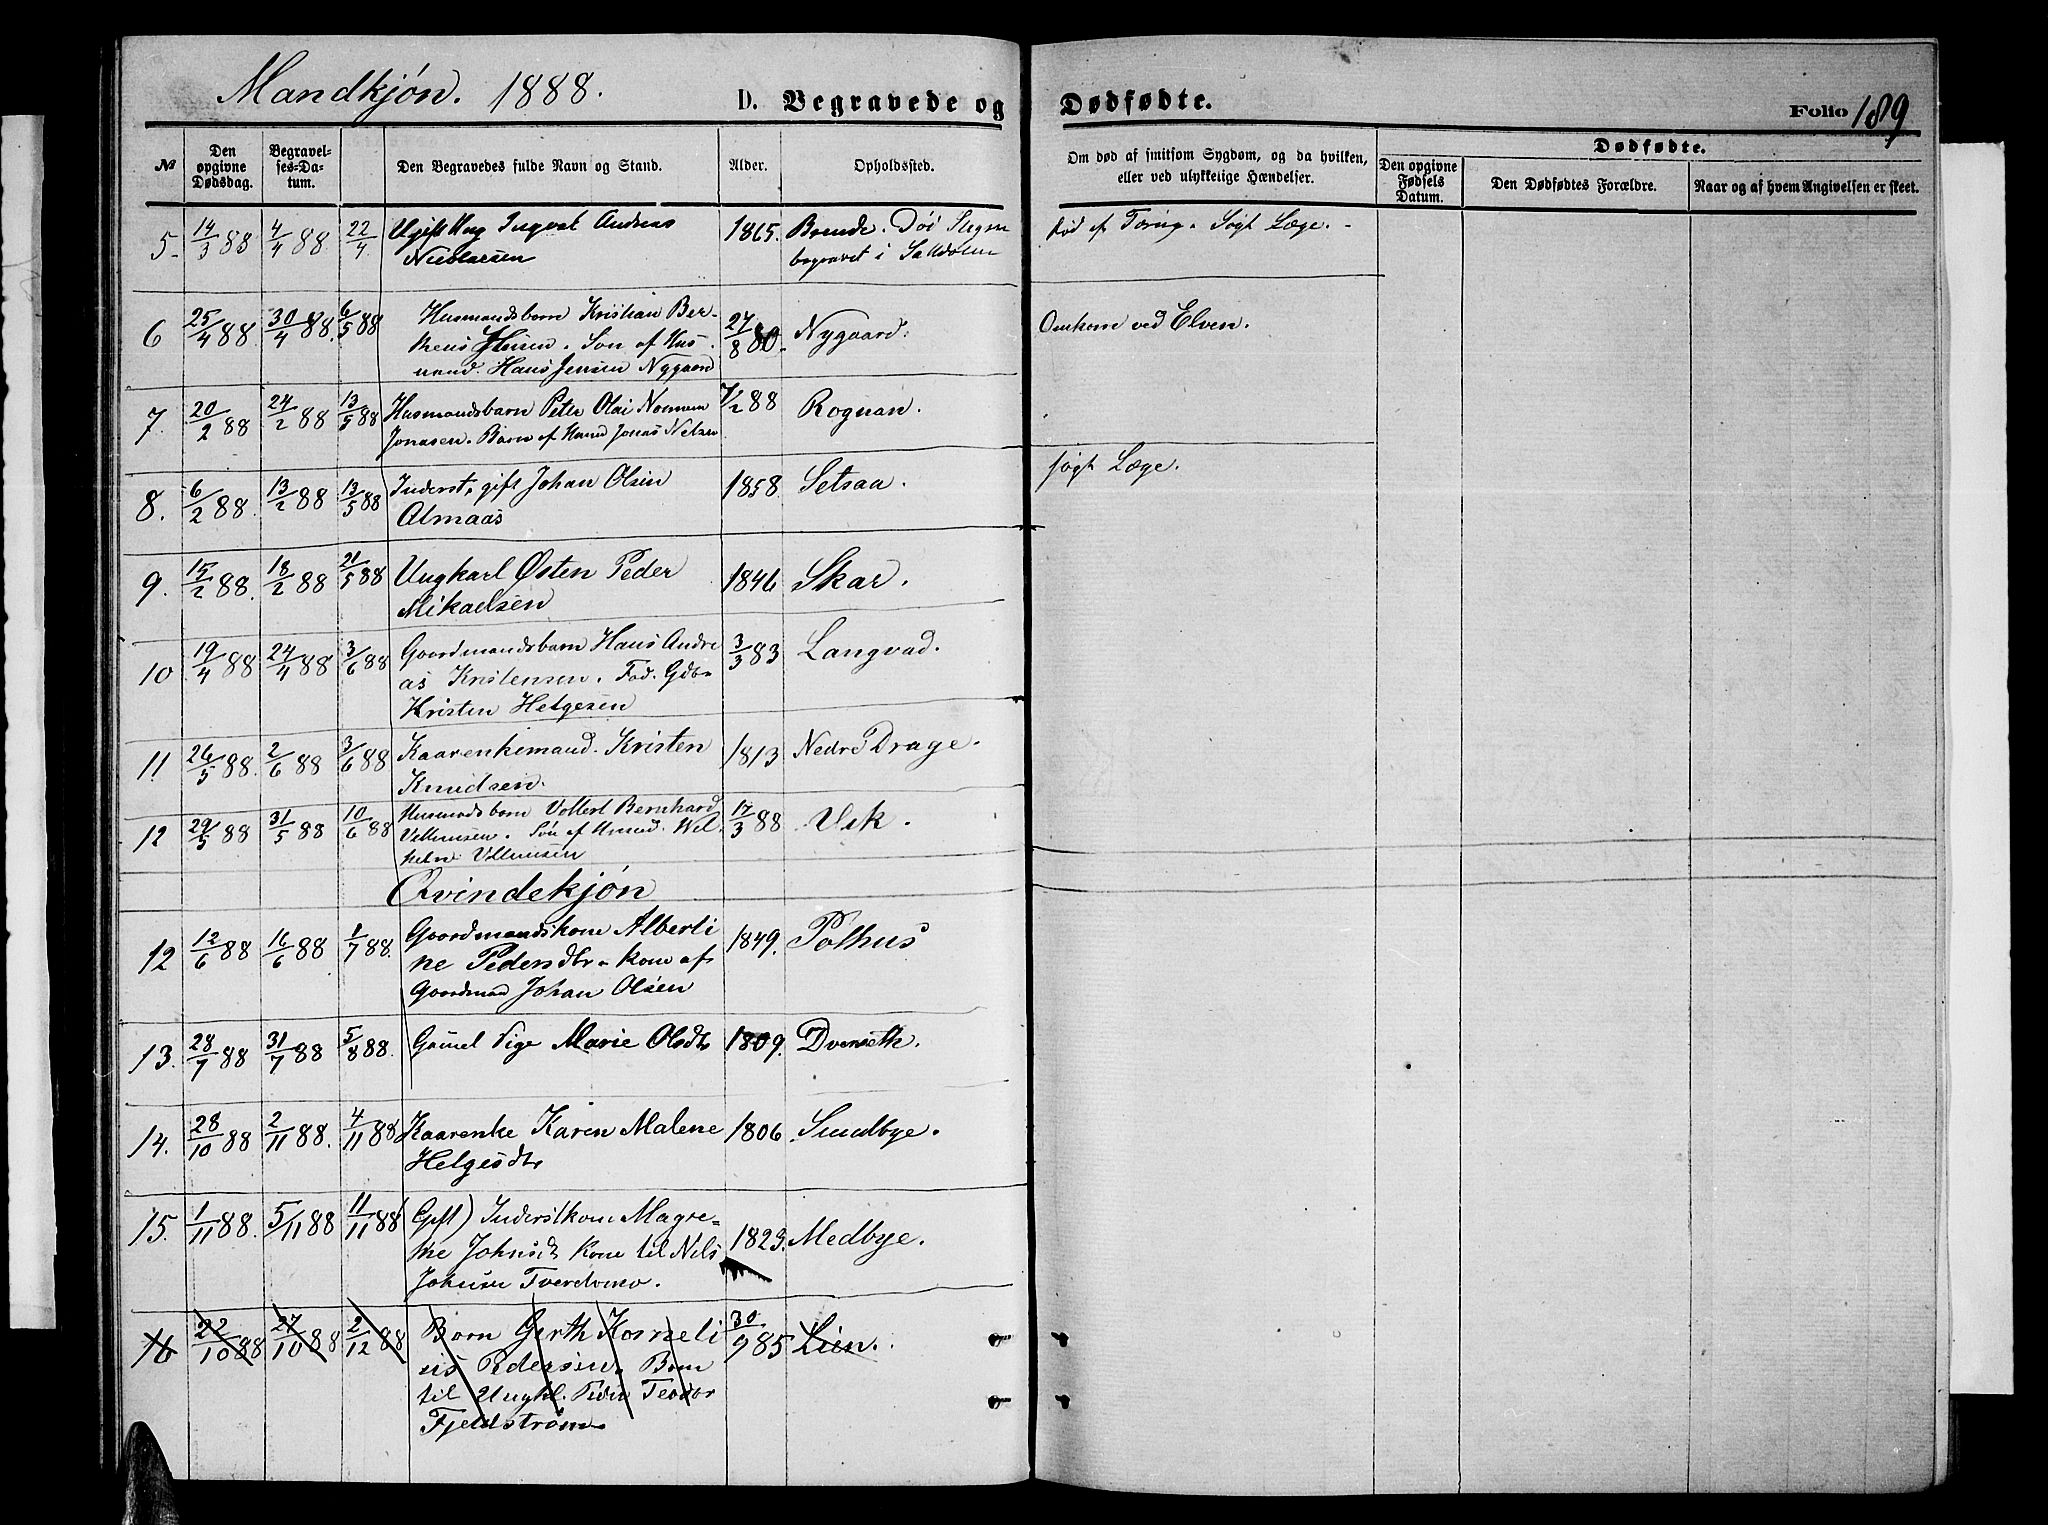 Mandkjøn. 1888. D. Begravede og Dødfødte. Folio 189
№ Den opgivne Dødsdag. Begravelses-Datum. Den Begravedes fulde Navn og Stand. Alder. Opholdssted. Om død af smitsom Sygdom, og da hvilken, eller ved ulykkelige Hændelser. Dødfødte. Den opgivne Fødsels Datum. Den Dødfødtes Forældre. Naar og af hvem Angivelsen er skeet.
5. 14/3 88 4/4 88 22/4 Ugift Ung Ingvat Andreas 1865. Død af Søgt Læge. -
begravet i Saltdalen
6 25/4 88. 30/4 88. 6/5 88 Husmandsbarn Kristian Ber- 27/8 80. Nygaard. Omkom ved Elven.
Søn af Hus-
mand. Hans Jensen Nygaard
7. 20/2 88 24/2 88 13/5 88 Husmandsbarn Peter Olai 7/2 88 Rognan.
Jonasen. Barn af Hmd Jonas Nelsen
8. 6/2 88. 13/2 88 13/5 88 Inderst, gift Johan Olsen 1858. Setsaa. søgt Læge.
Almaas
9. 15/2 88. 18/2 88 21/5 88 Ungkarl Østen Peder 1846 Skar.
Mikaelsen
10 19/4 88 24/4 88 3/6 88 Gaardmandsbarn Hans Andre 3/3 83 Langvad.
as Kristensen. Fad. Gdbr
Kristen Helgesen
11 26/5 88. 2/6 88 3/6 88 Kaarenkemand. Kristen 1813 Nedre Drage.
Knudsen.
12 29/5 88 31/5 88 10/6 88 Husmandsbarn Volbert Bernhard 17/3 88 Vik.
Villumsen. Søn af Hmnd. Wil-
helm Villumsen
Qvindekjøn
12 12/6 88 16/6 88 1/7 88. Gaardmandskone Alberti 1849. Pothus
ne Pedersdtr. kone af
Gaardman Johan Olsen
13. 28/7 88 31/7 88 5/8 88. Gamel Pige Marie Olsdtr 1809. Dverseth.
14. 28/10 88 2/11 88. 4/11 88 Kaarenke Karen Malene 1806. Sundbye.
Helgesdtr
15. 1/11 88. 5/11 88 11/11 88 Gift) Inderstkone Magre- 1823. Medbye.
the Johnsdt kone til Nils
Johnsen Tverdomo.
16 22/10 88 27/10 88 2/12 88 Barn Gerth Korneli 30/9 85 Lien.
us Pedersen. Barn
til Ungkl. Peder Teodor
Fjeldstrøm